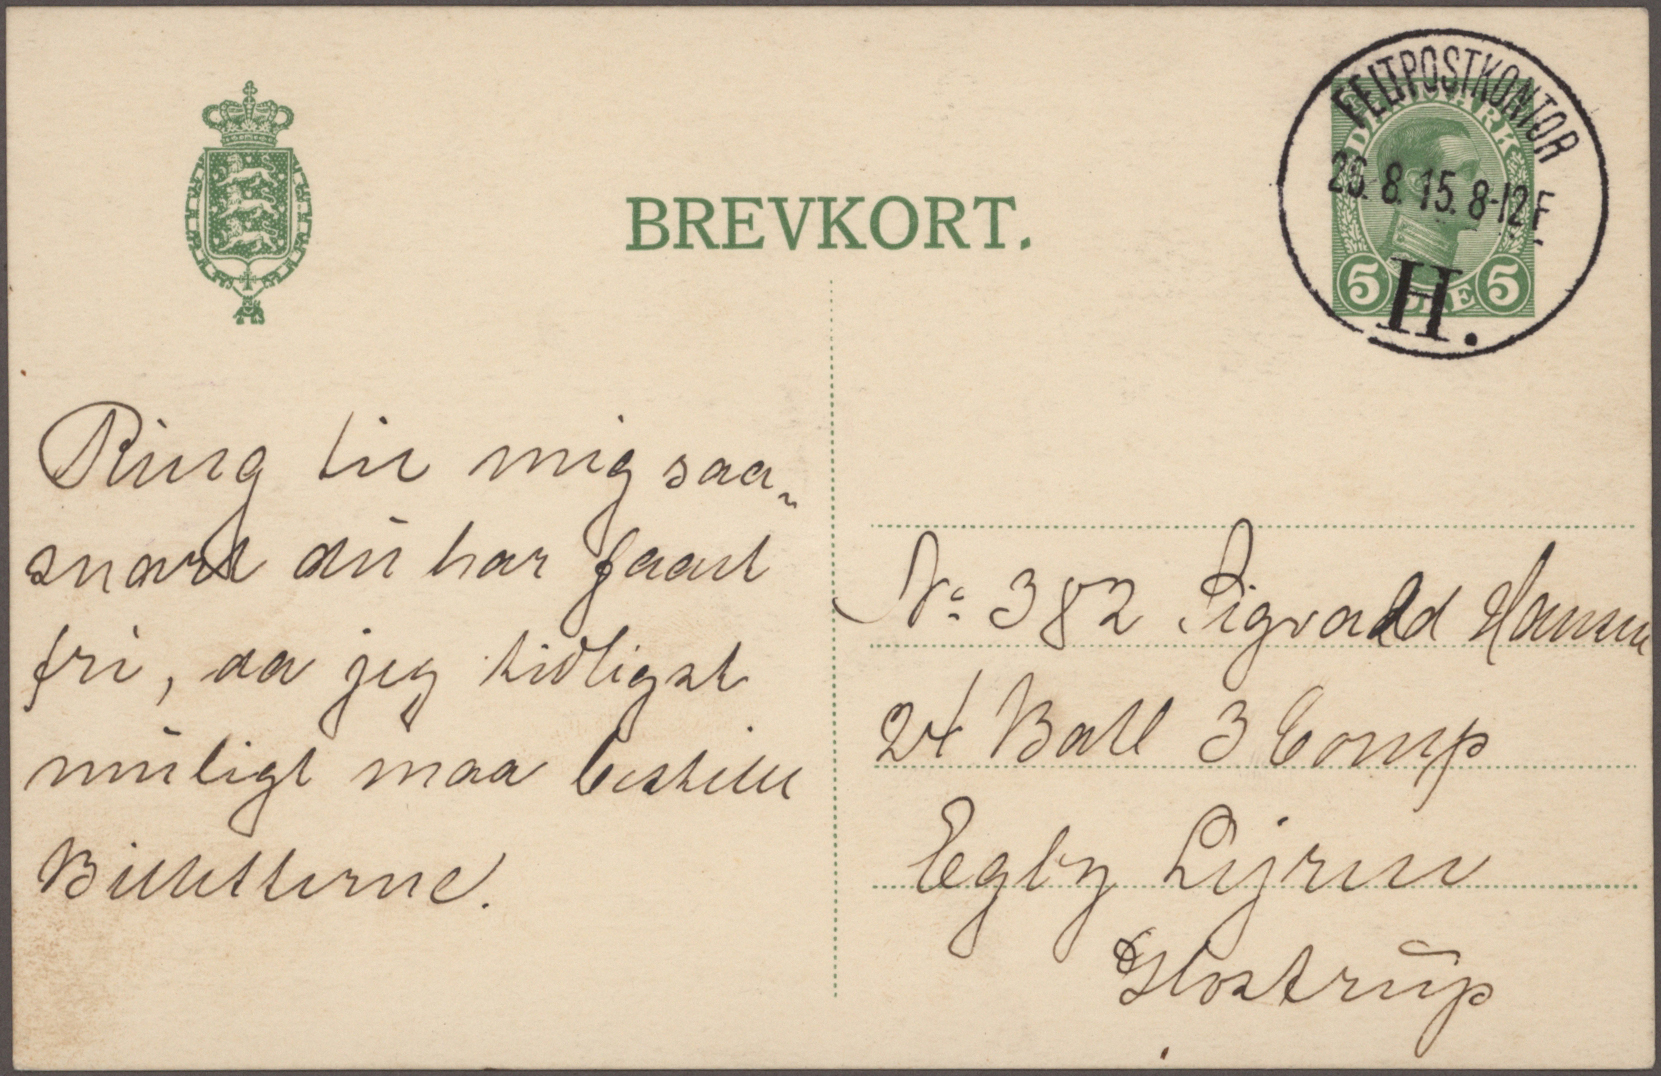 BREVKORT.
DANMARK
5 ØRE 5
FELTPOSTKONTOR
26. 8. 15. 8-12 F.
H.
Ring til mig saa-
snart du har faaet
fri, da jeg tidligst
muligt maa bestille
Billetterne.
No 382 Sigvald Hansen
24 Batl 3 Comp
Egby Lejren
Glostrup